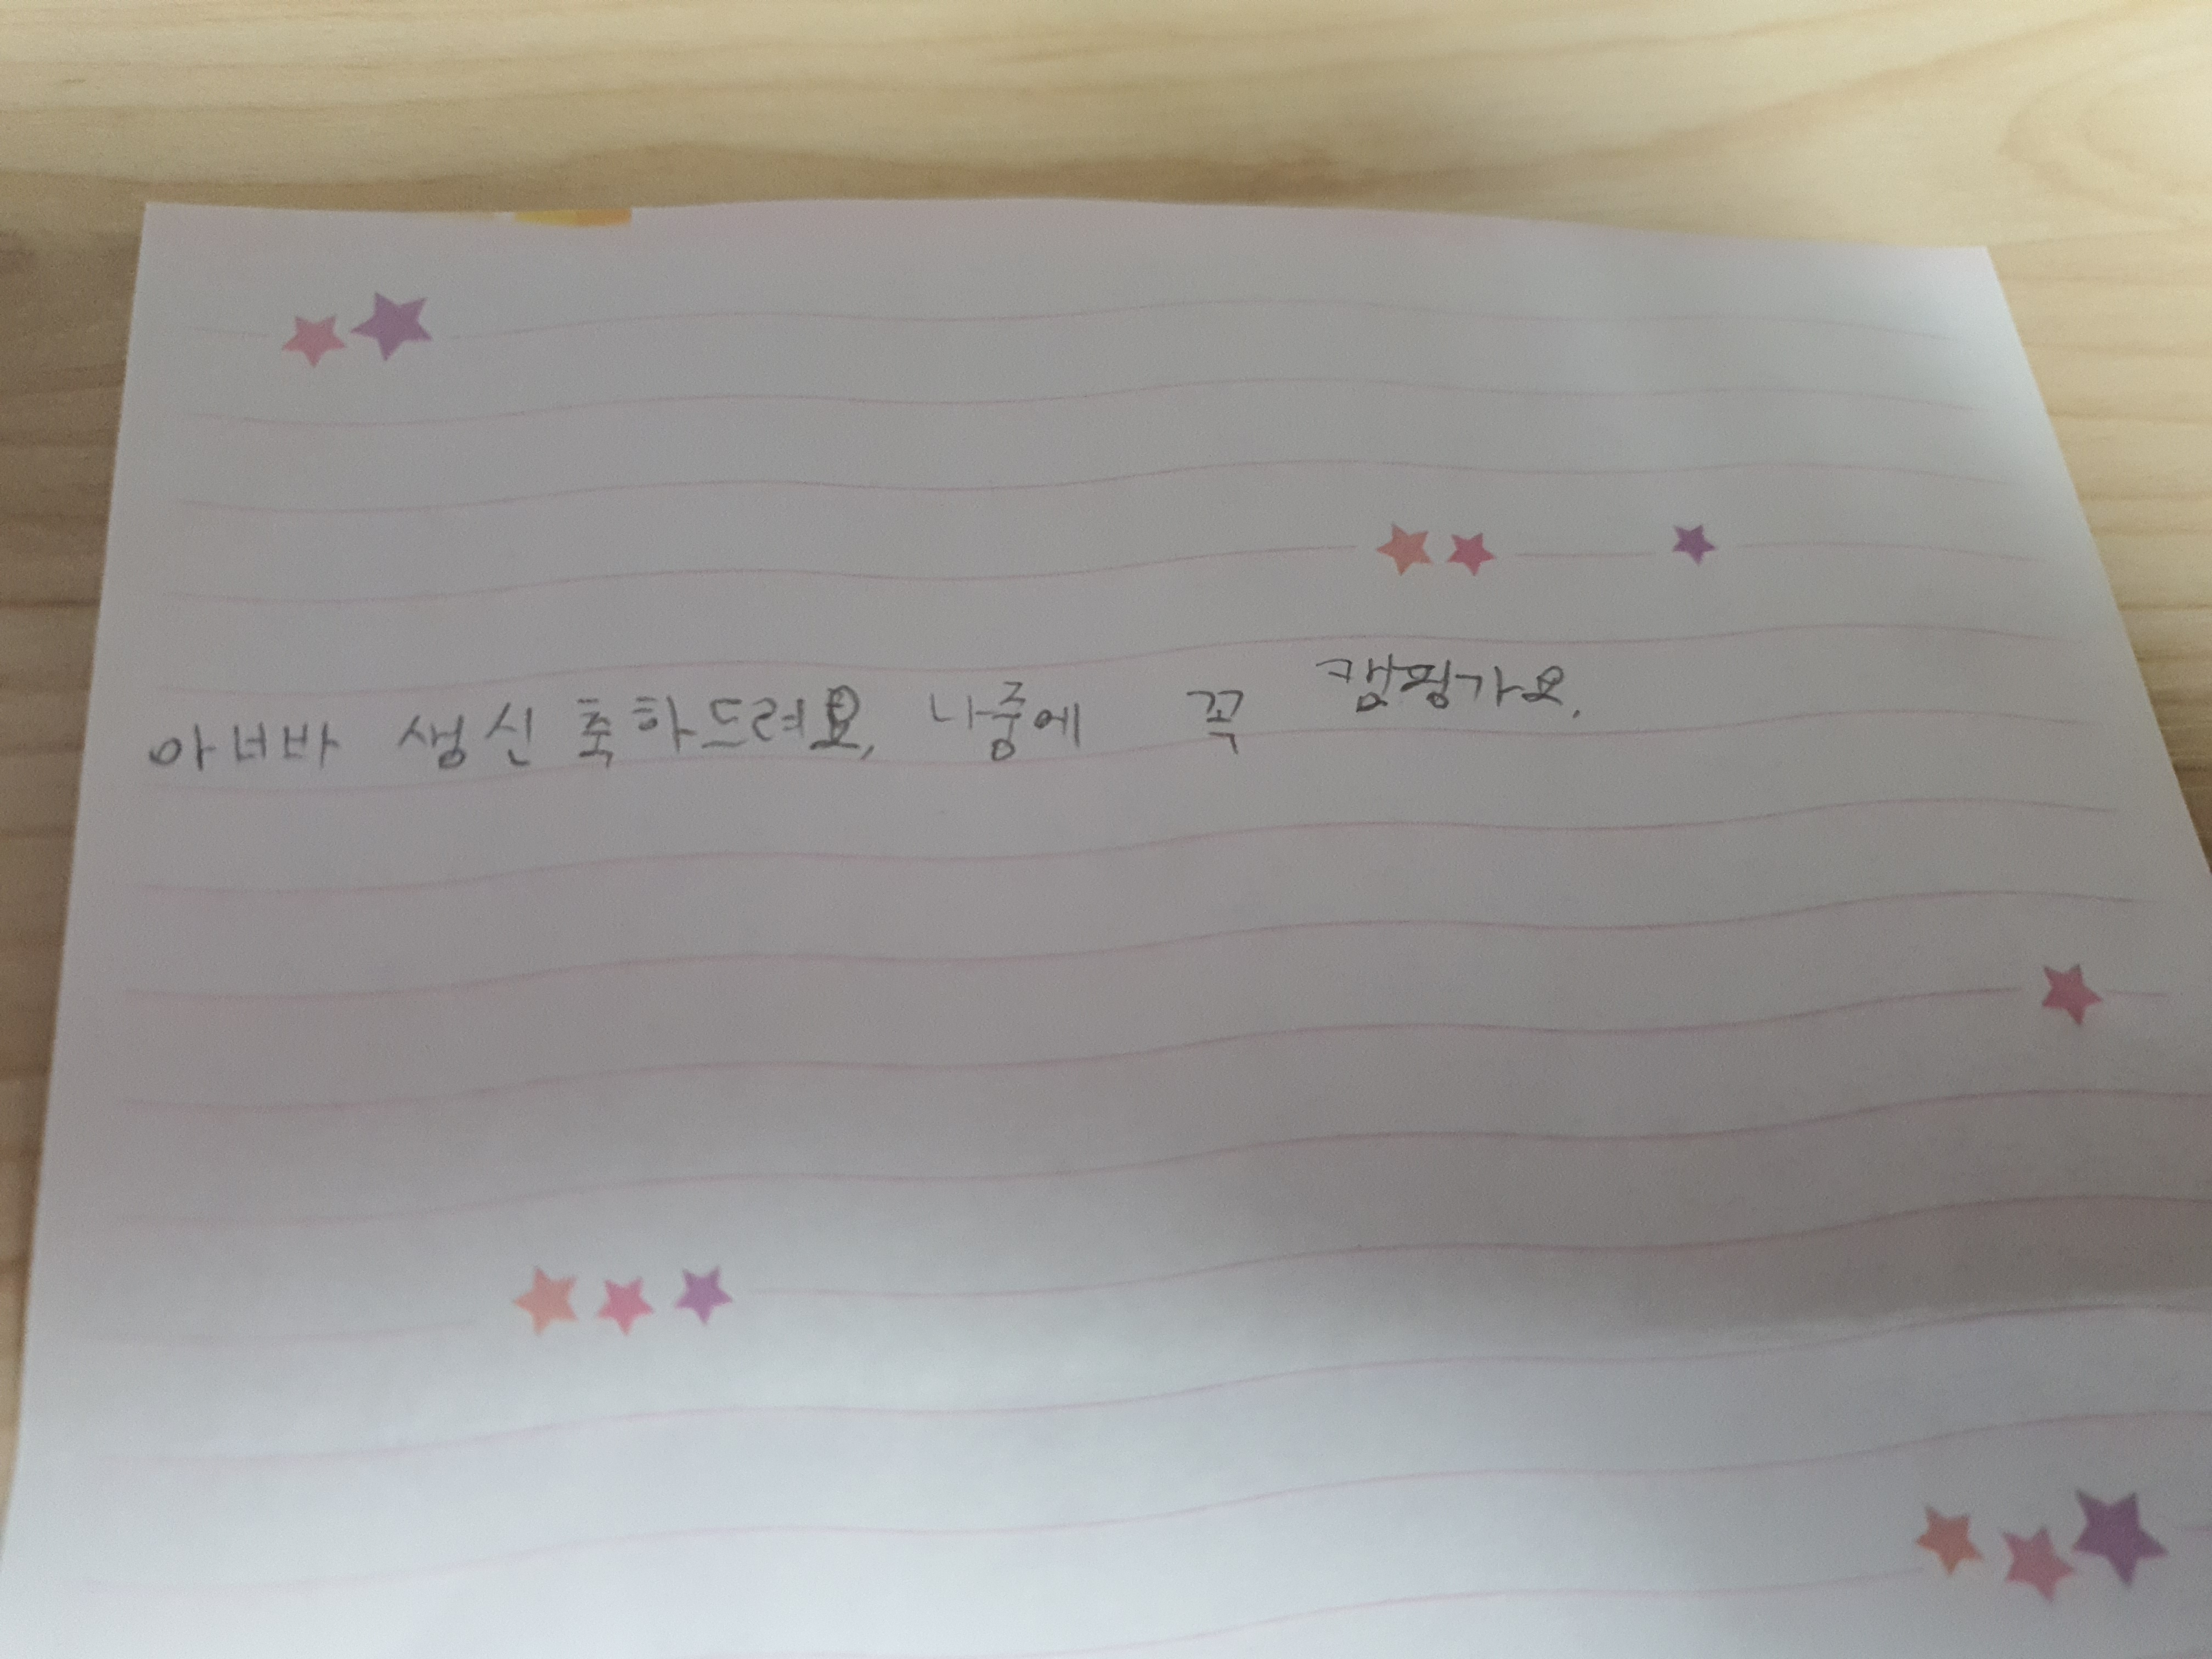 아너바 생신 축하드려요, 나중에 꼭 캠핑가요.